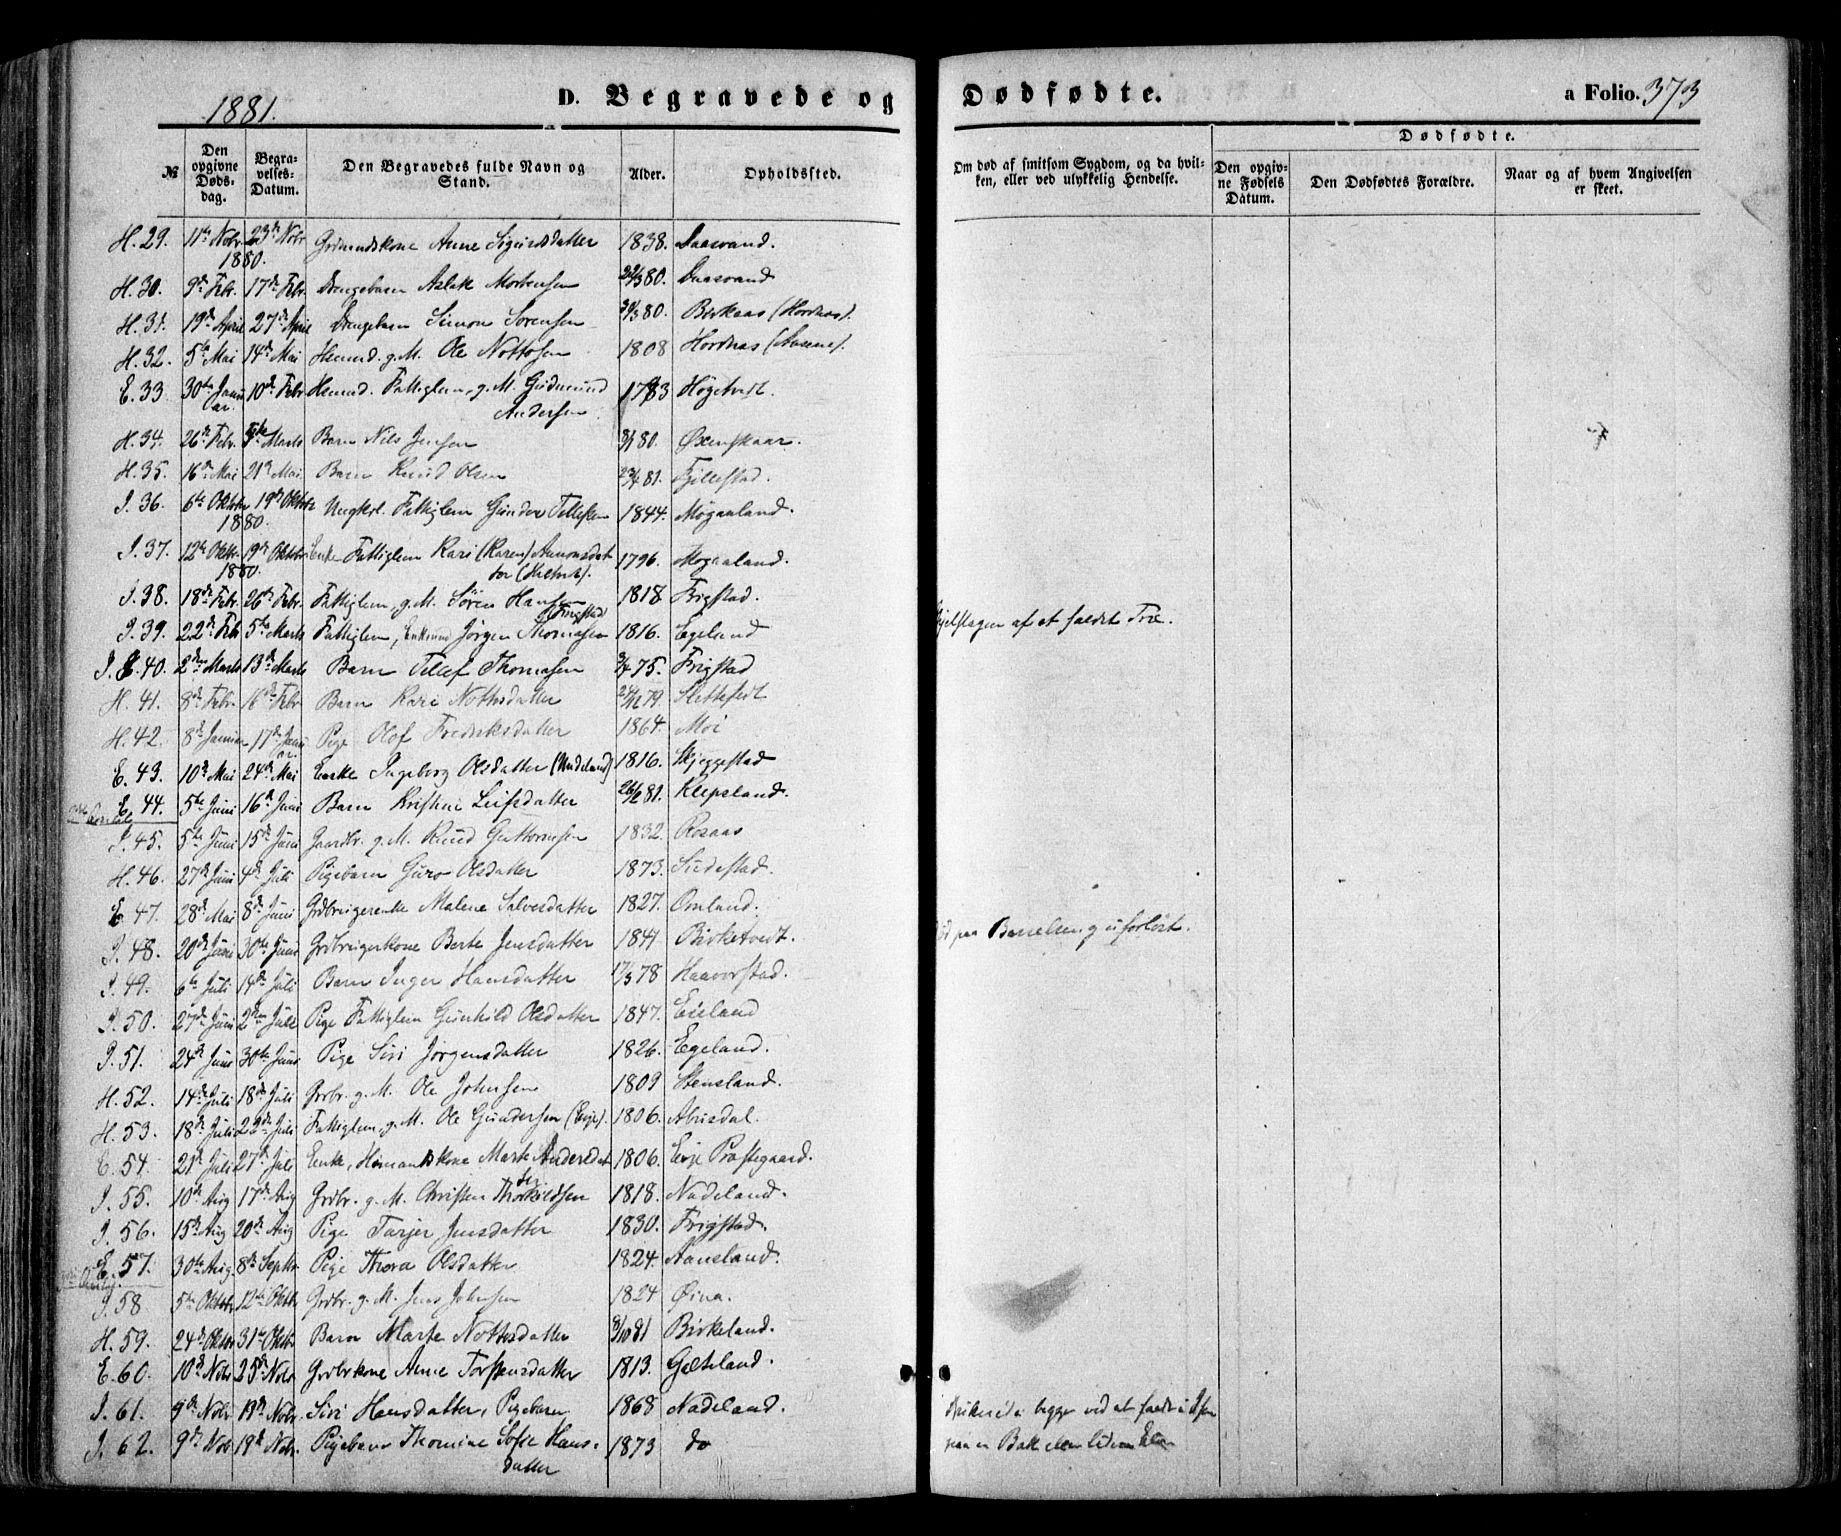 1881.
D. Begravede og
Dødfødte.
a Folio. 373
№
Den opgivne Døds-dag.
Begra-velses-Datum.
Den Begravedes fulde Navn og Stand.
Alder.
Opholdssted.
Om død af smitsom Sygdom, og da hvil-ken, eller ved ulykkelig Hendelse.
Dødfødte.
Den opgiv-ne Fødsels Datum.
Den Dødfødtes Forældre.
Naar og af hvem Angivelsen er skeet.
H. 29. 11te Novbr 1880. 23de Novbr Anne Sigurdsdatter 1838. Daasvand.
H. 30. 9de Febr. 17de Febr. Drengebarn Aslak Mortensen 80. Daasvand
H. 31. 19de April 27de April Drengebarn Simon Sørensen 80. Birkaas (Hordnes).
H. 32. 5te Mai 14de Mai Huusmd. g. M. Ole Nottosen 1808 Hordnes
E. 33. 30te Januar. 10de Febr Huusmd. Fattiglem, g. M. Gudmund Andersen 1783 Høgetvedt.
H. 34. 26de Febr. Marts Barn Nils Jensen 80. Øxenskaar.
H. 35. 16de Mai 21de Mai Barn Knud Olsen 81. Fjellestad.
I. 36. 6te Oktbr 1880. 19de Oktobr Ungkrl. Fattiglem Gunder Tellefsen 1844. Mogaaland.
I. 37. 12te Oktbr. 1880. 19de Oktobr Enke Fattiglem Kari (Karen) Aanonsdatter 1796. Mogaaland.
I. 38. 18de Febr. 26de Febr. Fattiglem, g. M. Sören Hansen (Frigstad) 1818 Frigstad.
I. 39. 22de Feb 5te Marts Fattiglem, Enkemd Jörgen Thomasen 1816. Egeland Ihjelslagen af et faldet Træ.
I. 40. 2den Marts 13de Marts Barn Tellef Thomasen 75. Frigstad
H. 41. 8de Febr. 16de Febr. Barn Kari Nottosdatter 79. Slettefedt
H. 42. 8de Januar 17de Januar Pige Olof Fredriksdatter 1864. Moi
E. 43. 10de Mai 24de Mai Enke Ingeborg Olsdatter 1816. Skjeggestad
E. 44. 5te Juni 16de Juni Barn Kristine Leifsdatter 81. Klepsland.
I. 45. 5te Juni 15de Juni Gaardbr. g. M. Knud Guttormsen 1832. Rosaas
H. 46. 27de Juni 4de Juli Pigebarn Guro Olsdatter 1873.
E. 47. 28de Mai 8de Juni Grdbrugerenke Malene Salvesdatter 1827. Omland.
I. 48. 20de Juni 30te Juni Grdbrugerkone Berte Jensdatter 1841 Birketvedt. Død paa Barselseng uforløst.
I. 49. 6te Juli 14de Juli Barn Inger Hansdatter 78 Haaverstad.
I. 50. 27de Juni 2den Juli Pige Fattiglem Gunhild Olsdatter 1847. Eieland
I. 51. 24de Juni 30te Juni Pige Siri Jørgensdatter 1826. Egeland.
H. 52. 14de Juli 18de Juli Grbr. g. M. Ole Johnsen 1809 Stensland.
H. 53. 18de Juli 22de Juli Fattiglem, g. M. Ole Gundersen (Evje). 1806. Abusdal.
E. 54. 21de Juli 27de Juli Enke, Marte Andersdatter 1806. Evje Præstegaard.
I. 55. 10de Aug 17de Aug Grdbr. g. M. Christen Thorkildsen 1818. Nadeland.
I. 56. 15de Aug 20de Aug Pige Tarjer Jensdatter 1830. Frigstad.
E. 57. 30te Aug. 8de Septbr Pige Thora Olsdatter 1824. Aaneland.
I. 58 5te Oktobr 12te Oktbr Grdbr. g. M. Jens Johnsen 1824 Øina.
H. 59. 24de Oktobr 31te Oktbr Barn Marte Nottosdatter 8/10 81 Birkeland.
E. 60. 10de Novbr 25de Novbr Grdbrkone Anne Torstensdatter 1813. Gjetteland.
I. 61. 9de Novbr 19de Novbr. Siri Hansdatter, Pigebarn 1868 Nadeland. begge ved at falde i
I. 62. 9de Nob 18de Nobr. Pigebarn Thomine Sofie Hansdatter 1873 do